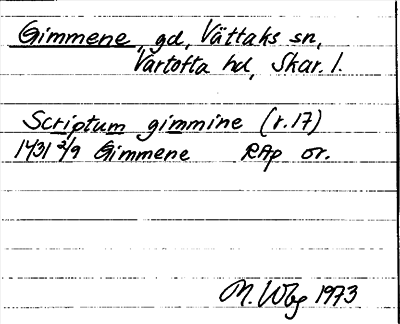 Gimmene, gd, Vättaks sn,
Vartofta hd, Skar. l.
Scriptum gimmine (r.17)
1431 2/9 Gimmene RAp or.
M. Wbg 1973